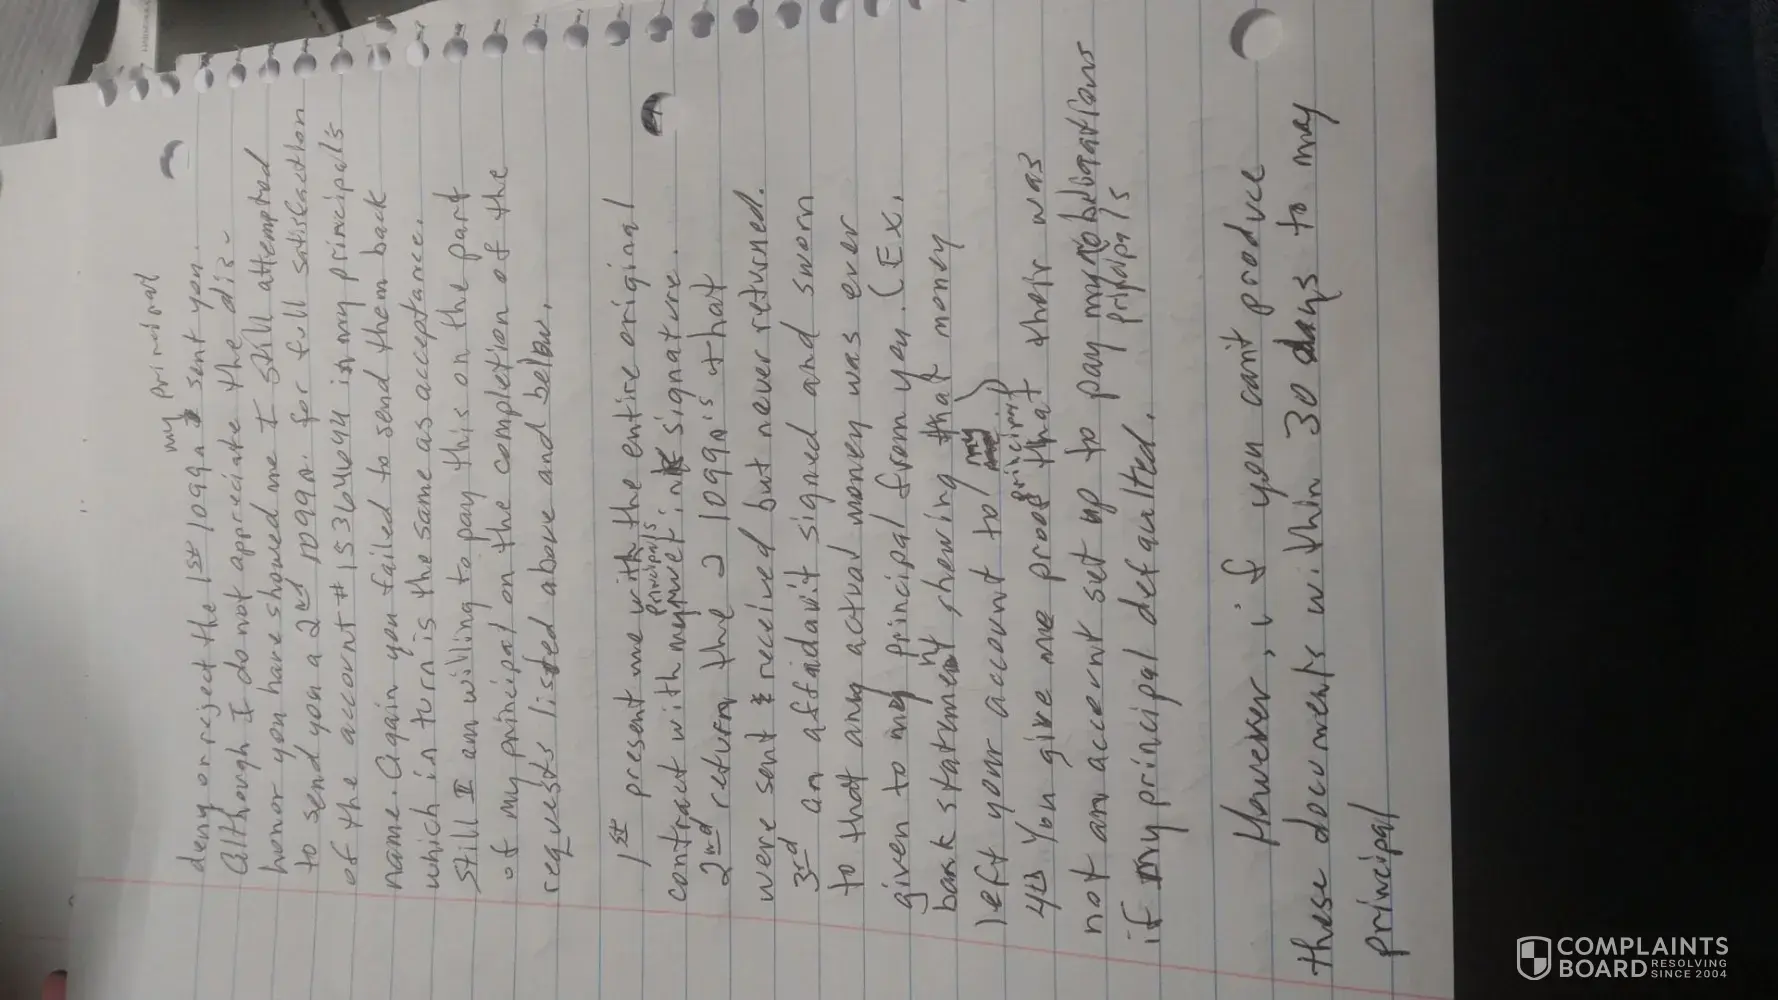 my principal
deny or reject the 1st 1099A sent you.
Although I do not appreciate the dis-
honor you have showed me I still attempted
to send you a 2nd 1099A. for full satisfaction
of the account # 15364644 in my principal's
name. Again you failed to send them back
which in turn is the same as acceptance.
Still I am willing to pay this on the part
of my principal on the completion of the
requests listed above and below.
1st present me with the entire original
contract with principal's signature.
2nd return the 2 1099A's that
were sent & received but never returned.
3rd an affidavit signed and sworn
to that any actual money was ever
given to my principal from you. (Ex.
bank statement showing that money
left your account to my principal)
4th You give me proof that their was
not an account set up to pay my principals obligations
if my principal defaulted.
However, if you can't produce
these documents within 30 days to my
principal
COMPLAINTS
BOARD RESOLVING
SINCE 2004